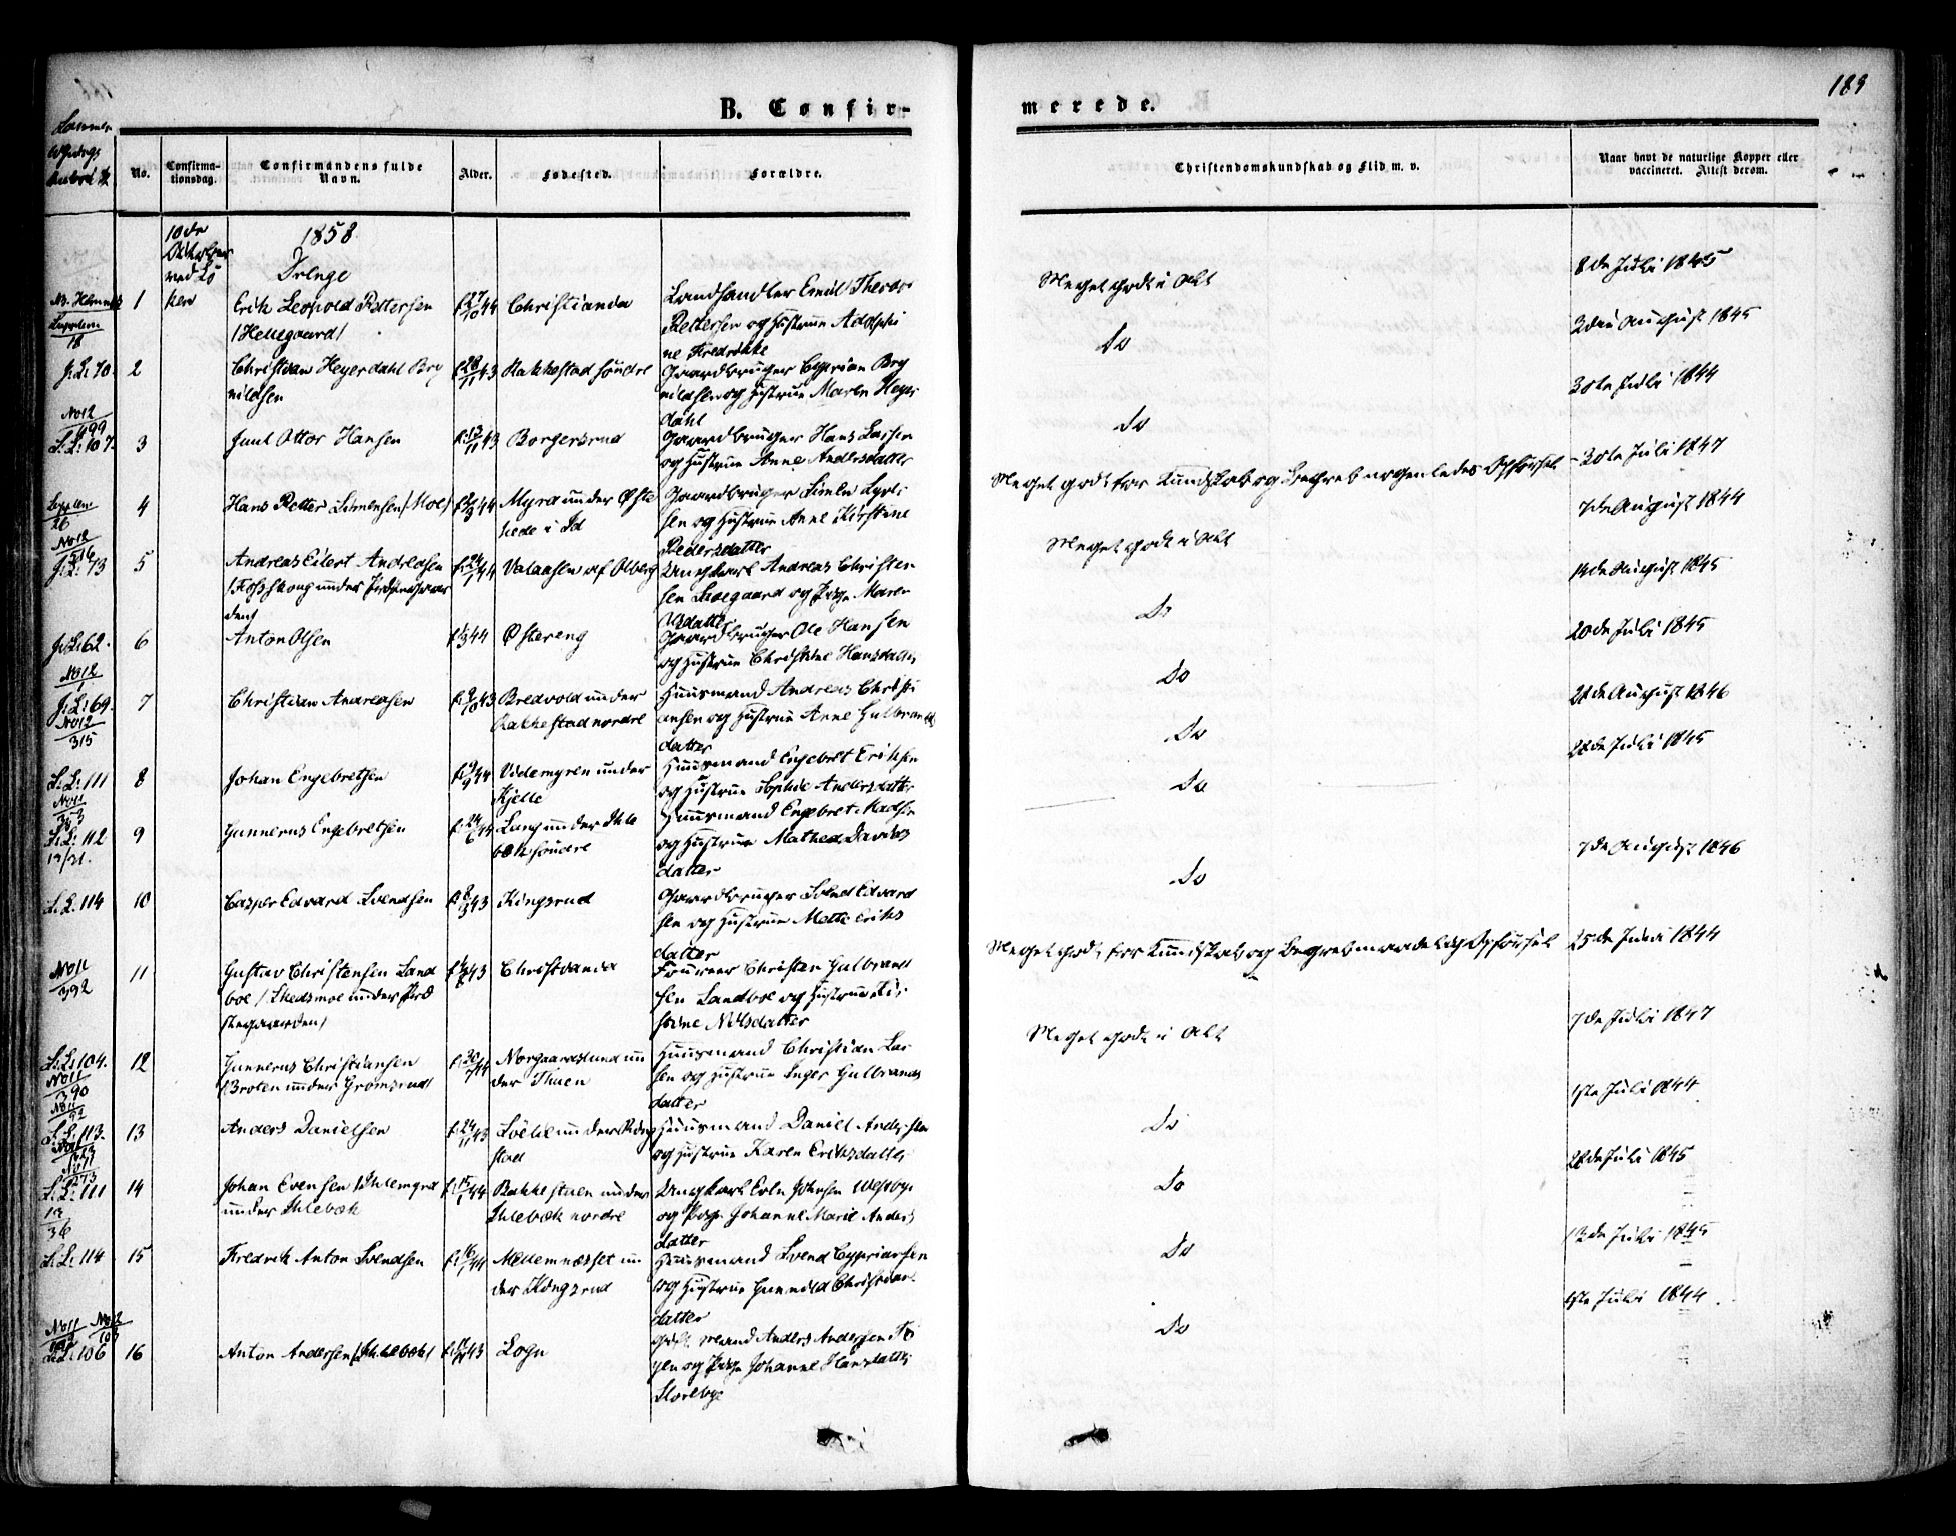 189
B. Confir-
merede.
No.
Confirma-
tionsdag.
Confirmandens fulde
Navn.
Alder.
Fødested.
Forældre.
Christendomskundskab og Flid m. v.
Naar havt de naturlige Kopper eller
vaccineret. Attest derom.
10de
Oktober
ved Lö
ken
1858
Drenge
1
Erik Leopold Pettersen
/Hellegaard/
f. 27/10 44
Christiania
Landhandler Emil Theodor
Pettersen og Hustrue Adolphi
ne Fredrikke
Meget godt i Alt
8de Juli 1845
J. L. 70.
2
Christian Heyerdahl Bry
nildsen
f. 28/11 43
Rakkestad söndre
Gaardbruger Cyprian Bry
nildsen og Hustrue Maren Heyer
dahl
Do
2den August 1845
No 12
499
L. L. 107.
3
Juul Ottor Hansen
43
Borgersrud
Gaardbruger Hans Larsen
og Hustrue Anne Andersdatter
Do
30te Juli 1844
4
Hans Petter Simensen /Moe/
44
Myra under Øste
hede i Id
Gaardbruger Simen Syver
sen og Hustrue Anne Kirstine
Pedersdatter
Meget godt for Kundskab og Begreb nogenledes Opförsel
30te Juli 1847
No 12
516
J. L. 73
5
Andreas Eilert Andreasen
/Fosshoug under Præstegaar
den/
f. 24/1 44
Valaasen af Olberg
Ungkarl Andreas Christen
sen Svegaard og Pige Maren
Olsdatter
Meget godt i Alt
7de August 1844
J. L. 62.
6
Anton Olsen
44
Østereng
Gaardbruger Ole Hansen
og Hustrue Christine Hansdatter
Do
14de August 1845
No 12
J. L. 69.
7
Christian Andreasen
f. 9/10 43
Bredvold under
Rakkestad nordre
Huusmand Andreas Christi
ansen og Hustrue Anne Gulbrands
datter
Do
20de Juli 1845
No 12
315
L. L. 111
8
Johan Engebretsen
44
Videmyren under
Kjelle
Huusmand Engebret Eriksen
og Hustrue Sophie Andersdatter
Do
28de August 1846
No 11
353
L. L. 112
9
Gunnerus Engebretsen
Lang under Ihle
bæk söndre
Huusmand Engebret Madsen
og Hustrue Mathea Davids
datter
Do
28de Juli 1845
L. L. 114
10
Casper Edvard Svendsen
f. 8/3 43
Kingsrud
Gaardbruger Svend Edvard
sen og Hustrue Mette Eriks
datter
Do
7de August 1846
No 11
392
11
Gustav Christensen Land
boe /Skedsmoe under Præ
stegaarden/
43
Christiania
Christen Gulbrand
sen Landboe og Hustrue Kir
stine Nilsdatter
Meget godt for Kundskab og Begreb maadelig Opförsel
25de Juni 1844
L. L. 104.
No 11
390
12
Gunnerus Christiansen
/Broten under Gromsrud/
f. 30/7 44
Norgaardslund un
der Thuen
Huusmand Christian Lar
sen og Hustrue Inger Gulbrands
datter
Meget godt i Alt
7de Juli 1847
L. L. 113.
13
Anders Danielsen
f. 24/11 43
under Ring
stad
Huusmand Daniel Andersen
og Hustrue Karen Eriksdatter
Do
1ste Juli 1844
L. L. 111
14
Johan Evensen /Ihlemyra
under Ihlebæk
f. 15/1 44
Bakkestuen under
Ihlebæk nordre
Ungkarl Even Johnsen Westbye
og Pige Johanne Marie Anders
datter
Do
28de Juli 1845
L. L. 114
15
Fredrik Anton Svendsen
f. 16/1 44
Mellemnesset un
der Kingsrud
Huusmand Svend Cypriansen
og Hustrue Gunnild Christians
datter
Do
12de Juli 1845
No 11 No 12
L. L. 106
16
Anton Andersen /Ihlebæk/
43
Logn
Gift Mand Anders Andersen
og Pige Johanne Hansdatter
Storebye
Do
1ste Juli 1844